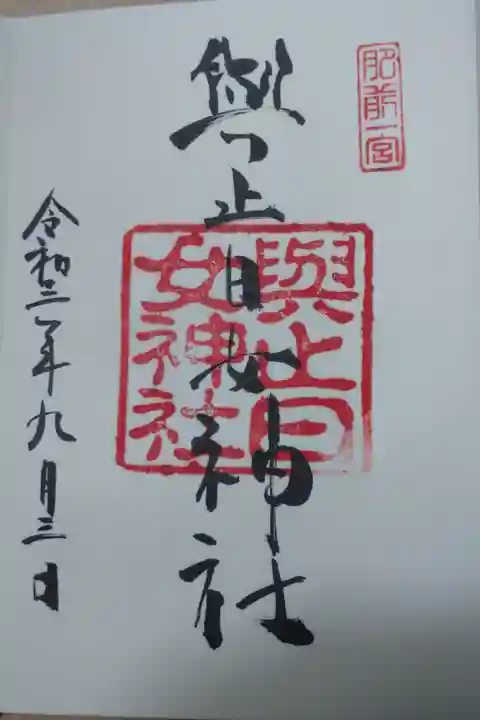 肥前一宮
與止日女神社
與止日
女神社
令和三年九月三日